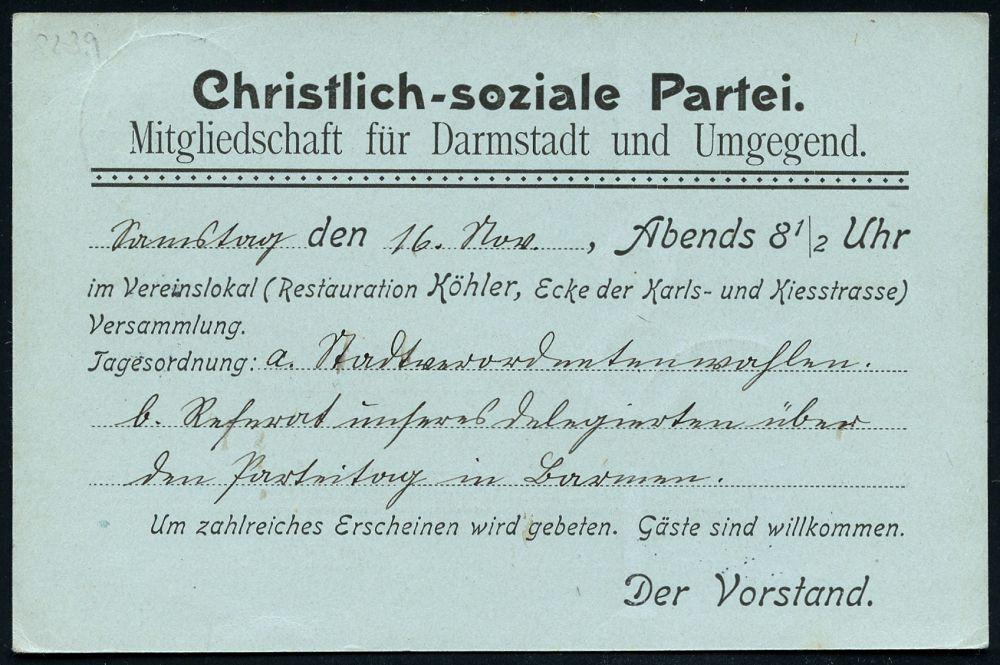 8239
Christlich-soziale Partei.
Mitgliedschaft für Darmstadt und Umgegend.
Samstag den 16. Nov. , Abends 8 1/2 Uhr
im Vereinslokal (Restauration Köhler, Ecke der Karls- und Kiesstrasse)
Versammlung.
Tagesordnung: a. Stadtverordnetenwahlen.
b. Referat unseres Delegierten über
den Parteitag in Barmen.
Um zahlreiches Erscheinen wird gebeten. Gäste sind willkommen.
Der Vorstand.